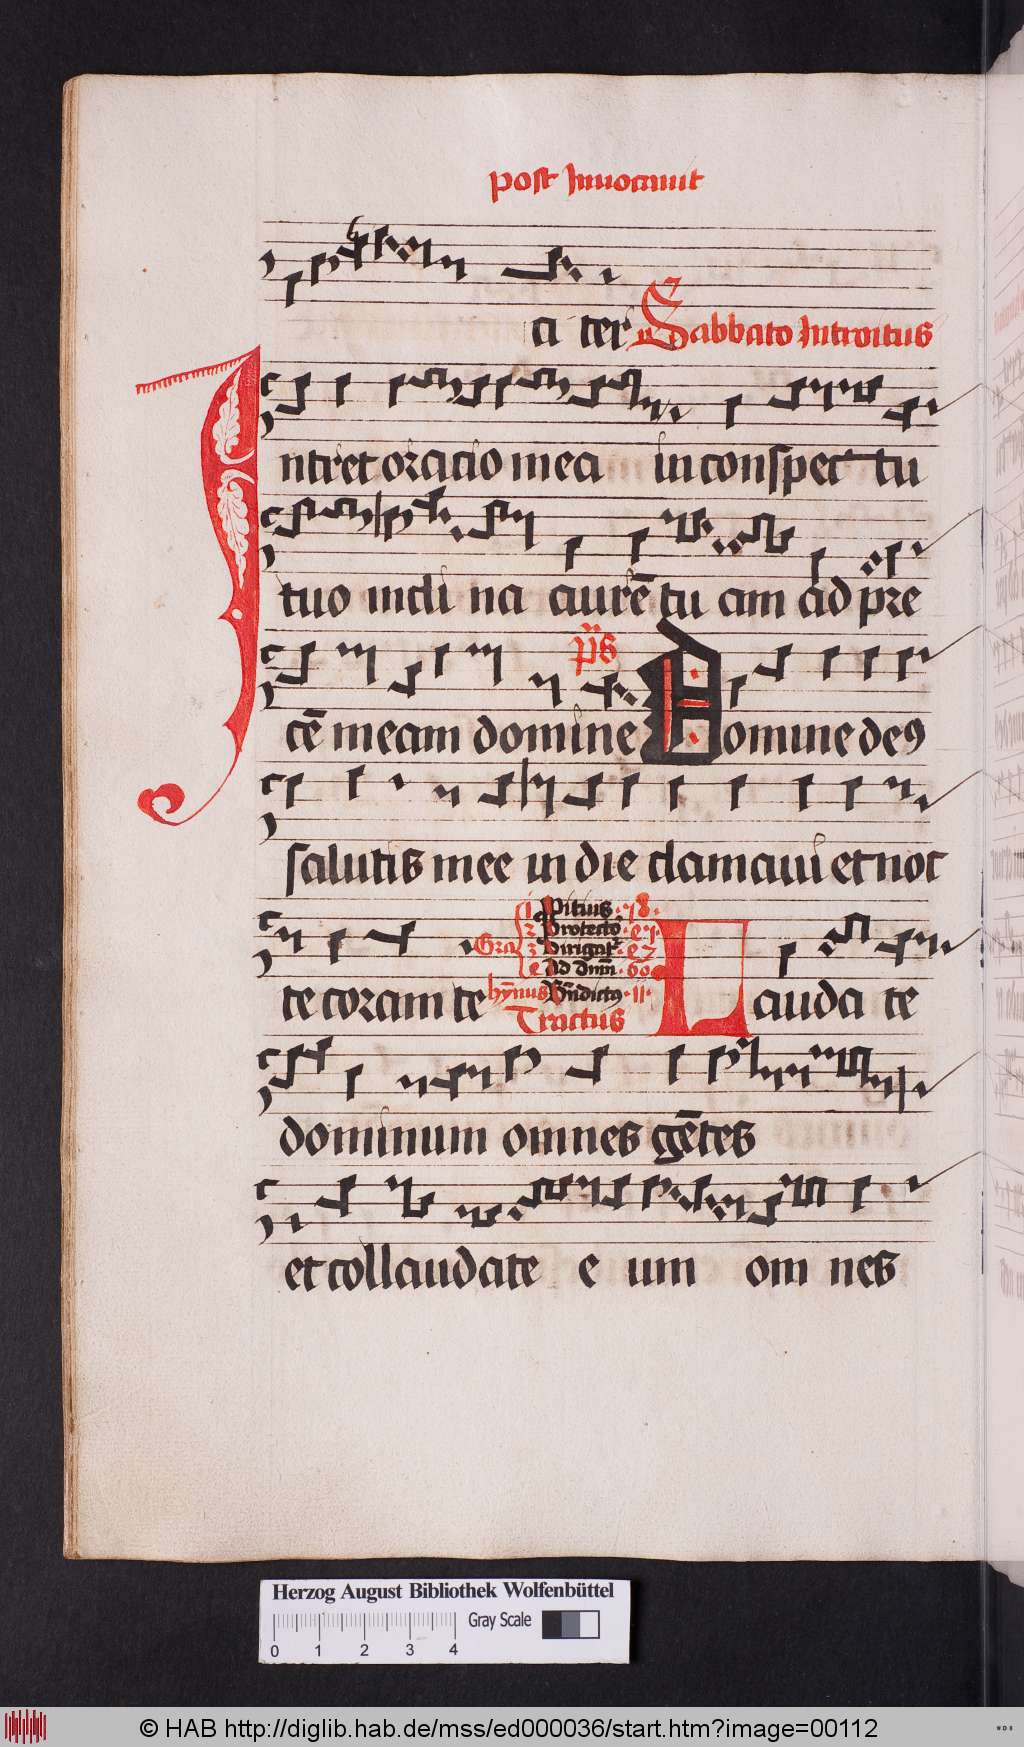 post Inuocauit
ci ter Sabbato Introitus
Intret oracio mea in conspectu
tuo incli na aurē tu am ad p̄ce
p̄s
cē meam domine Domine deꝰ
salutis mee in die clamaui et noc
te coram te Gra 1 Pitius 78
2 Protectō
3 Dirigat̄
Ad dnm̄ 60
hȳnus Bn̄dictꝰ 11
Tractus
Lauda te
dominum omnes gētes
et collaudate e um om nes
Herzog August Bibliothek Wolfenbüttel
Gray Scale
0 1 2 3 4
© HAB http://diglib.hab.de/mss/ed000036/start.htm?image=00112